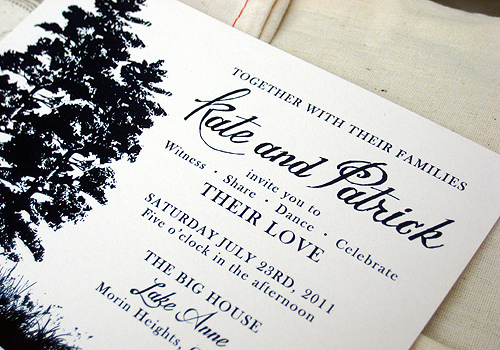 TOGETHER WITH THEIR FAMILIES
Kate and Patrick
invite you to
Witness · Share · Dance · Celebrate
THEIR LOVE
SATURDAY JULY 23RD, 2011
Five o'clock in the afternoon
THE BIG HOUSE
Lake Anne
Morin Heights,